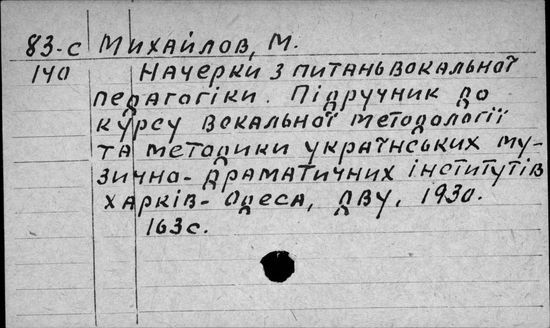 83-с Михайлов, М.
140 Начерки з питань вокальної
педагогіки. Підручник до
курсу вокальної методології
та методики українських му-
зично-драматичних інститутів
Харків-Одеса, ДВУ, 1930.
163с.